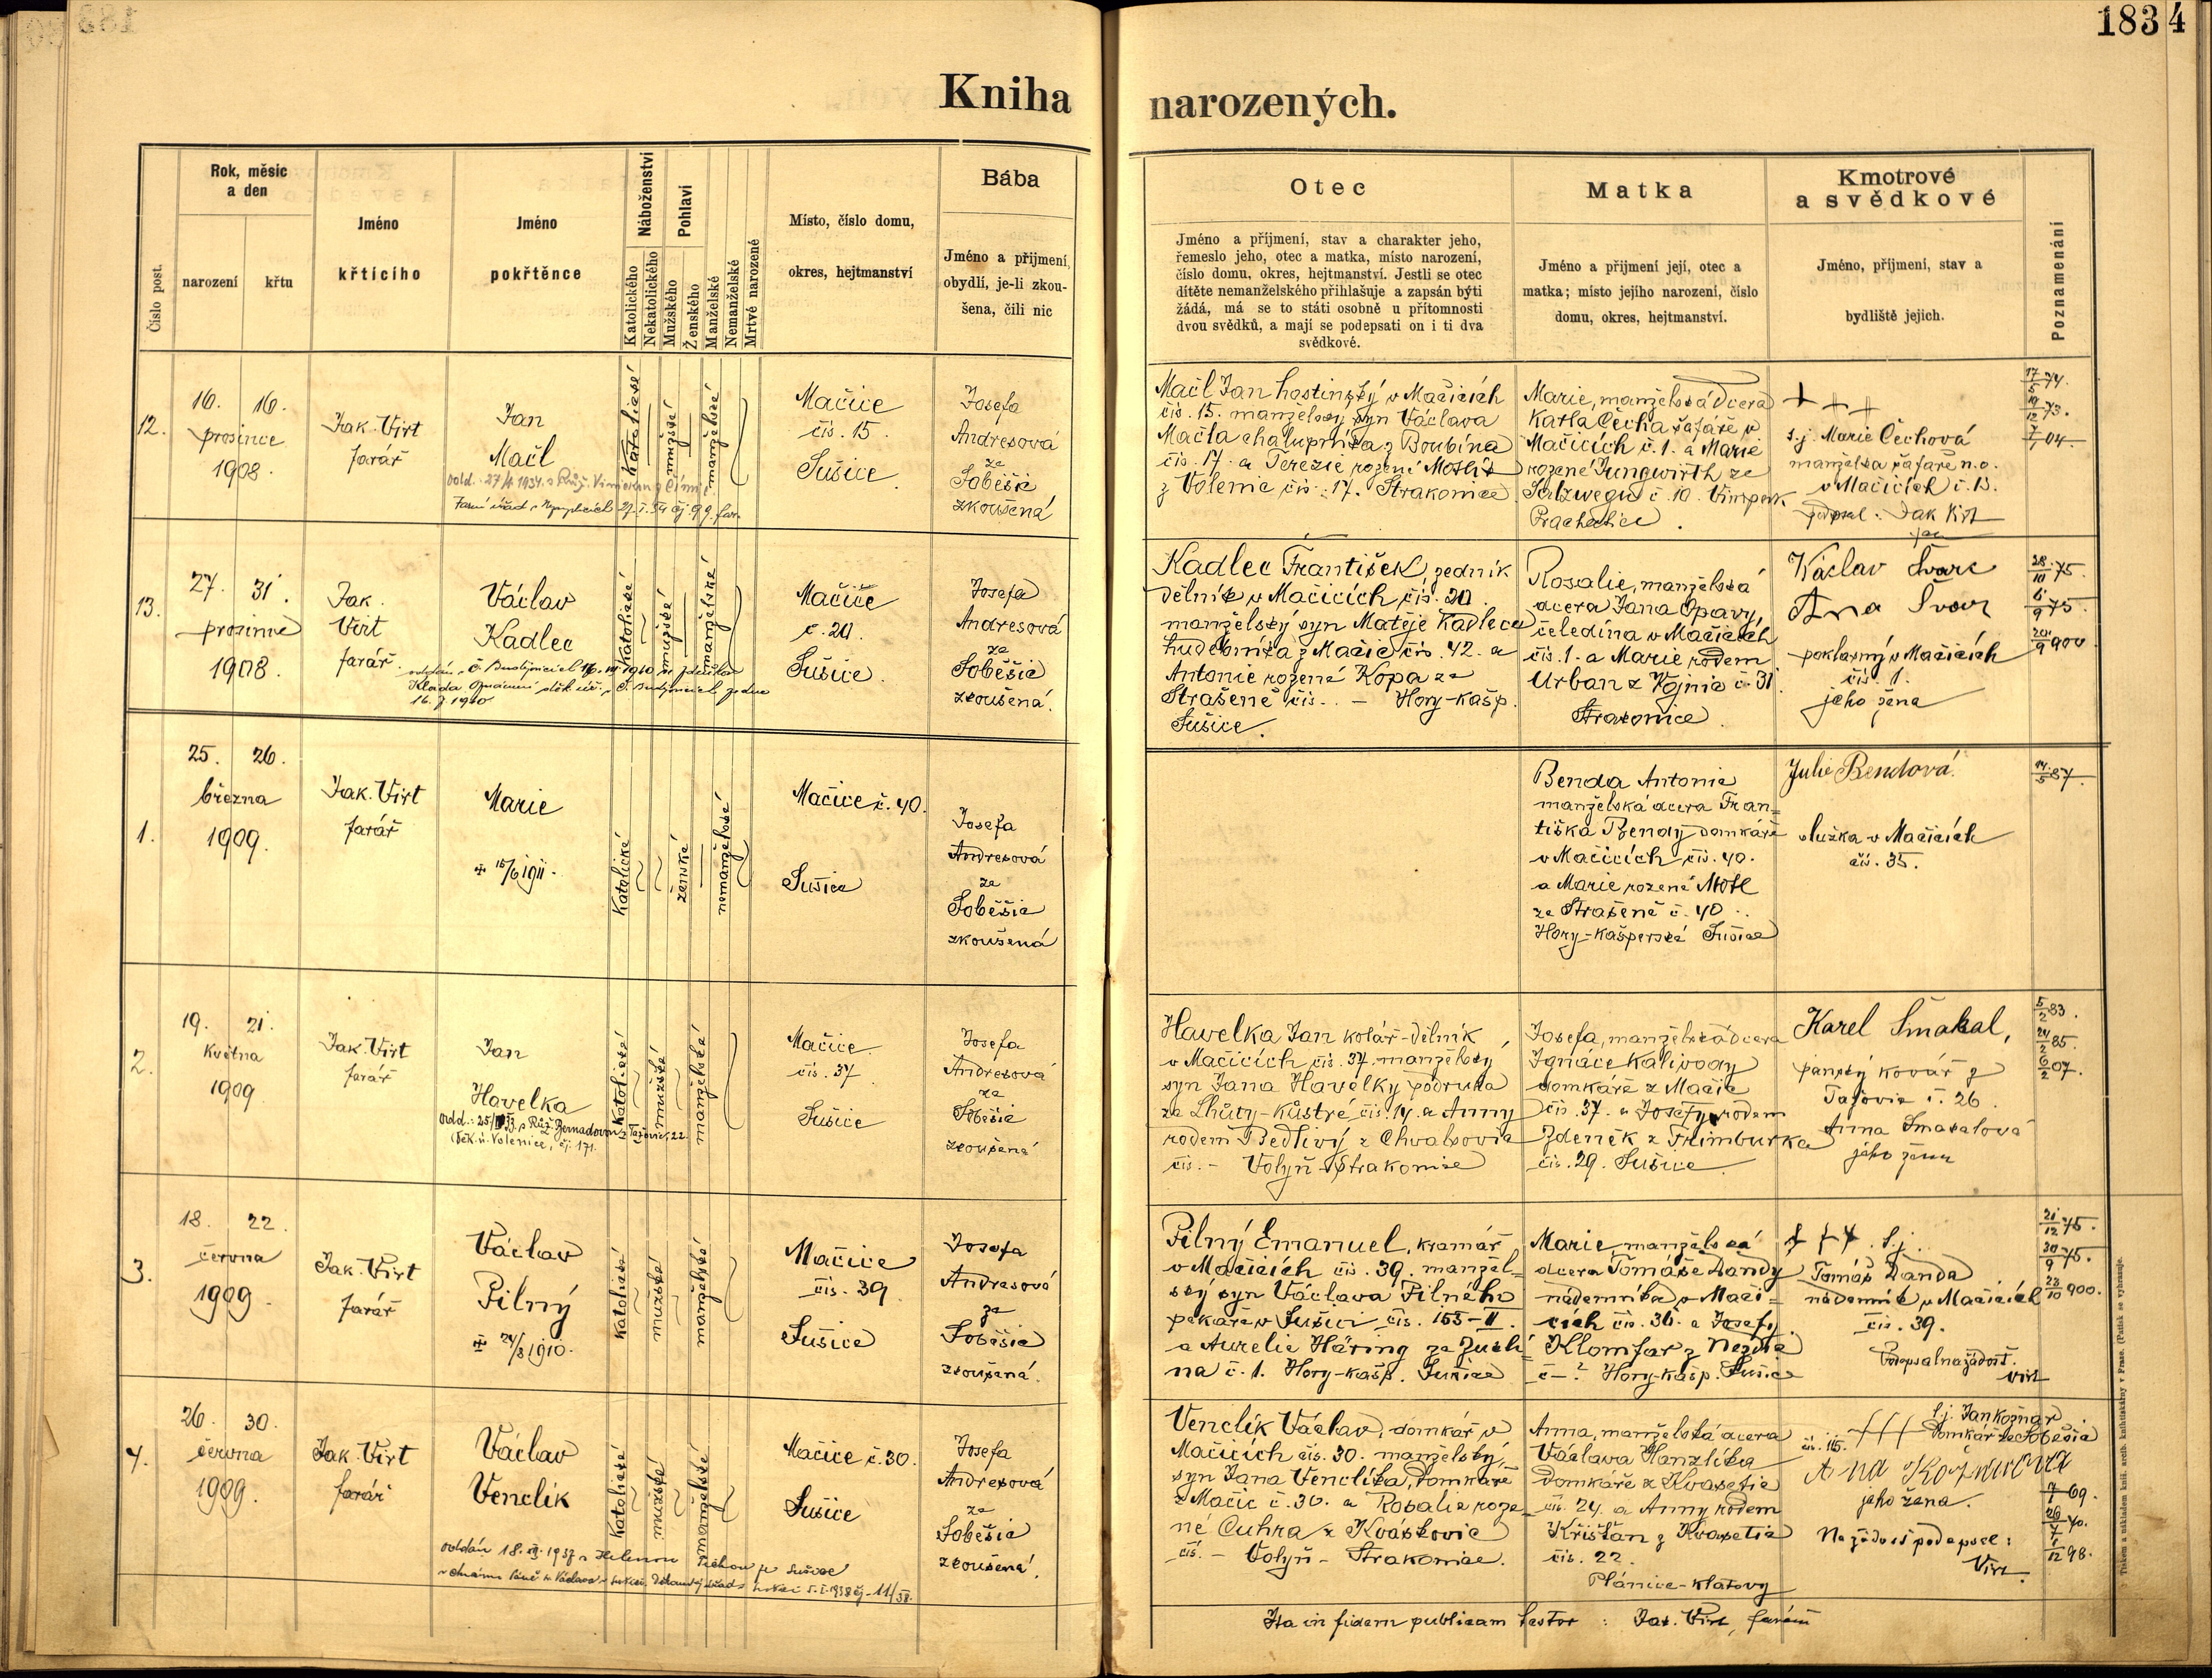 183
4
Kniha narozených.
Číslo post.
Rok, měsíc
a den
narození
křtu
Jméno
křtícího
Jméno
pokřtěnce
Náboženství
Katolického
Nekatolického
Pohlaví
Mužského
Ženského
Manželské
Nemanželské
Mrtvě narozené
Místo, číslo domu,
okres, hejtmanství
Bába
Jméno a příjmení,
obydlí, je-li zkou-
šena, čili nic
Otec
Jméno a příjmení, stav a charakter jeho,
řemeslo jeho, otec a matka, místo narození,
číslo domu, okres, hejtmanství. Jestli se otec
dítěte nemanželského přihlašuje a zapsán býti
žádá, má se to státi osobně u přítomnosti
dvou svědků, a mají se podepsati on i ti dva
svědkové.
Matka
Jméno a příjmení její, otec a
matka; místo jejího narození, číslo
domu, okres, hejtmanství.
Kmotrové
a svědkové
Jméno, příjmení, stav a
bydliště jejich.
Poznamenání
12.
16. 16.
prosince
1908.
Jak. Virt
farář
Jan
Mačl
Katolické
mužské
manželské
Mačice
čís. 15.
Sušice
Josefa
Andresová
ze
Soběšic
zkoušená
Mačl Jan hostinský v Mačicích
čís. 15. manželský syn Václava
Mačla chalupníka z Boubína
čís. 17. a Terezie rozené
z Volenic čís. 17. Strakonice
Marie, manželská dcera
Karla Čecha šafáře v
Mačicích č. 1. a Marie
rozené Jungwirth ze
Salzwegu č. 10. Vimperk
Prachatice.
+ + +
s. j. Marie Čechová
manželka šafáře n. o.
v Mačicích č. 15.
podpsal: Jak Virt
far
17/5 74.
19/12 73.
7/7 04.
13.
27. 31.
prosince
1908.
Jak.
Virt
farář.
Václav
Kadlec
16. 7. 1940
Katolické
mužské
manželské
Mačice
č. 20.
Sušice.
Josefa
Andresová
ze
Soběšic
zkoušená.
Kadlec František, zedník
dělník v Mačicích čís. 20.
manželský syn Matěje Kadlece
hudebníka z Mačic čís. 42. a
Antonie rozené Kopa ze
Strašené čís. . – Hory-kašp.
Sušice.
Rosalie, manželská
dcera Jana Opavy,
čeledína v Mačicích
čís. 1. a Marie rodem
Urban z Vojnic č. 31.
Strakonice.
Václav Švarc
Ana Švarc
poklasný v Mačicích
čís. 1.
jeho žena
28/10 75.
6/9 75.
20/9 900
1.
25. 26.
března
1909.
Jak. Virt
farář
Marie
15/6 1911.
Katolické
ženské
nemanželské
Mačice č. 40.
Sušice
Josefa
Andresová
ze
Soběšic
zkoušená
Benda Antonie
manželská dcera Fran=
tiška Bendy domkáře
v Mačicích čís. 40.
a Marie rozené Motl
ze Strašené č. 40
Hory-kašperské Sušice
Julie Bendová.
služka v Mačicích
čís. 35.
14/5 87.
2.
19. 21.
Května
1909
Jak. Virt
farář
Jan
Havelka
Děk. ú. Volenice, čj. 171.
Katolické
mužské
manželské
Mačice
čís. 37.
Sušice
Josefa
Andresová
ze
Soběšic
zkoušená
Havelka Jan kolář-dělník
v Mačicích čís. 37. manželský
syn Jana Havelky podruha
ze Lhůty-kůstré čís. 14. a Anny
rodem Bedlivý z Chvalšovic
čís. – Volyň-Strakonice
Josefa, manželská dcera
Ignáce Kalivody
domkáře z Mačic
čís. 37. a Josefy rodem
Zdeněk z Frimburka
čís. 29. Sušice.
Karel Smakal,
panský kovář z
Tažovic č. 26.
Anna Smakalová
jeho žena
5/2 83.
24/2 85.
6/2 07.
3.
18. 22.
června
1909
Jak. Virt
farář
Václav
Pilný
24/8 1910.
Katolické
mužské
manželské
Mačice
čís. 39
Sušice
Josefa
Andresová
ze
Soběšic
zkoušená.
Pilný Emanuel, kramář
v Mačicích čís. 39. manžel=
ský syn Václava Pilného
pekaře v Sušici čís. 155-II.
a Aurelie Häring ze Zuch=
na č. 1. Hory-kašp. Sušice
Marie, manželská
dcera Tomáše Dandy
nádenníka v Mači=
cích čís. 36. a Josefy
Klomfar z Nezdic
č – ? Hory-kašp. Sušice
+ + +. s. j.
Tomáš Danda
nádenník v Mačicích
čís. 39.
Podepsal na žádost.
Virt
21/12 75.
30/9 75.
23/10 900.
4.
26. 30.
června
1909.
Jak. Virt
farář
Václav
Venclík
Katolické
mužské
manželské
Mačice č. 30.
Sušice
Josefa
Andresová
ze
Soběšic
zkoušená.
Venclík Václav, domkář v
Mačicích čís. 30. manželský
syn Jana Venclíka, domkáře
z Mačic č. 30. a Rosalie roze-
né Cuhra z Kváskovic
čís. – Volyň – Strakonice.
Anna, manželská dcera
Václava Hanzlíka
domkáře z Kvasetic
čís. 24. a Anny rodem
Křišťan z Kvasetic
čís. 22.
Plánice-Klatovy
s. j. Jan Kožnar
čís. 115. +++ domkář ze Soběšic
jeho žena.
Na žádost podepsal:
Virt.
7/7 69.
26/7 70.
1/12 98.
Ita in fidem publicam testor : Jak. Virt, farář
Tiskem a nákladem kníž. arcib. knihtiskárny v Praze. (Patisk se vyhrazuje.